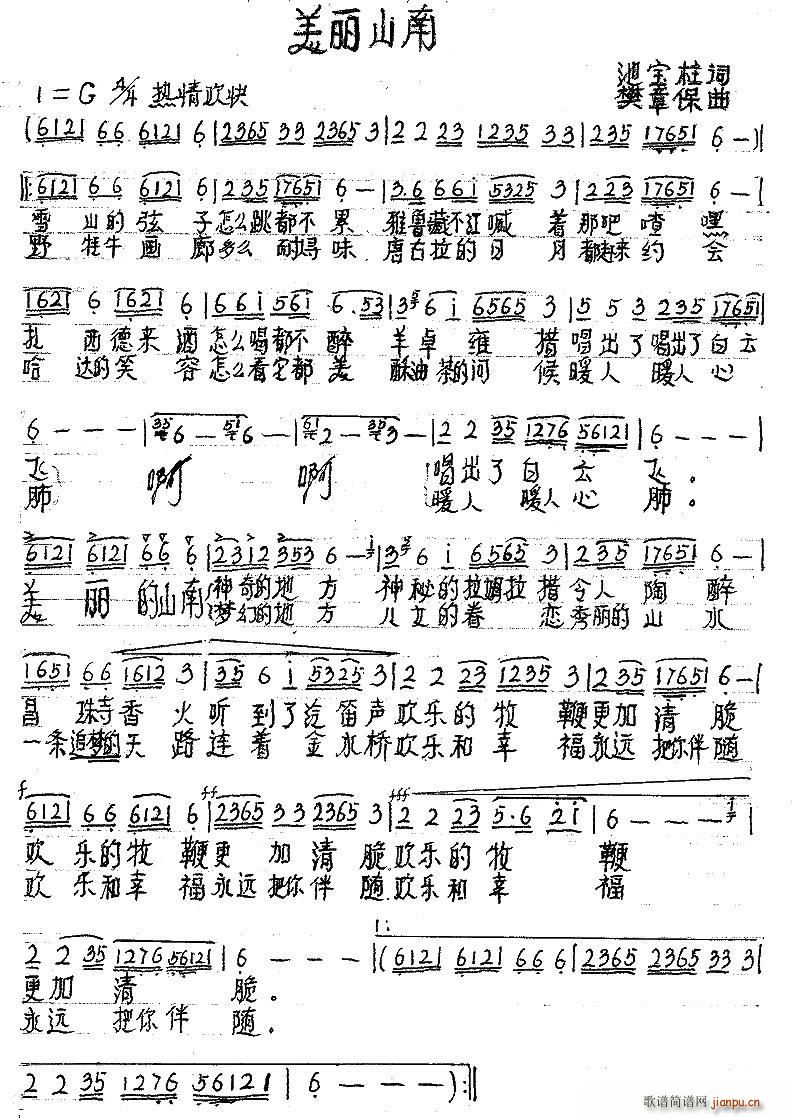 美丽山南
池宝柱词
1=G 4/4 热情欢快 樊章保曲
(6121 66 6121 6|2365 33 2365 3|2 2 23 1235 33|235 17651 6 —)|
‖:6121 66 6121 6|235 17651 6 —|3·6 66i 5325 3|223 17651 6 —|
雪山的弦子怎么跳都不累 雅鲁藏不红喊着那吧喳嘿
野牦牛画廊多么耐寻味 唐古拉的日月都赶来约会
1621 6 1621 6|66i 56i 6·53|3 6 i 6565 3|5 5 3 235 17651|
扎西德来酒怎么喝都不醉 羊卓雍措唱出了唱出了白云
哈达的笑容怎么看它都美 酥油茶的问候暖人暖人心
6 — — —|6 — 6 —|2 — 3 —|2 2 35 1276 56121|6 — — —|
飞 啊 啊 唱出了白云飞。
肺 暖人暖人心肺。
6121 6121 66 6|2312 353 6 —|3 6 i 6565 3|235 17651 6 —|
美丽的山南神奇的地方 神秘的拉姆拉措令人陶醉
梦幻的地方 儿女的眷恋秀丽的山水
1651 66 1612 3|35 6 i 5325 3|2 2 23 1235 3|235 17651 6 —|
昌珠寺香火听到了汽笛声欢乐的牧鞭更加清脆
一条追梦的天路连着金水桥欢乐和幸福永远把你伴随
f ff fff
6121 66 6121 6|2365 33 2365 3|2 2 23 5·6 2i|6 — — |
欢乐的牧鞭更加清脆欢乐的牧鞭
欢乐和幸福永远把你伴随欢乐和幸福
1:
2 2 35 1276 56121|6 — — —|(6121 6121 66 6|2365 2365 33 3|
更加清脆。
永远把你伴随。
2 2 35 1276 56121|6 — — —):‖
歌谱简谱网
jianpu.cn